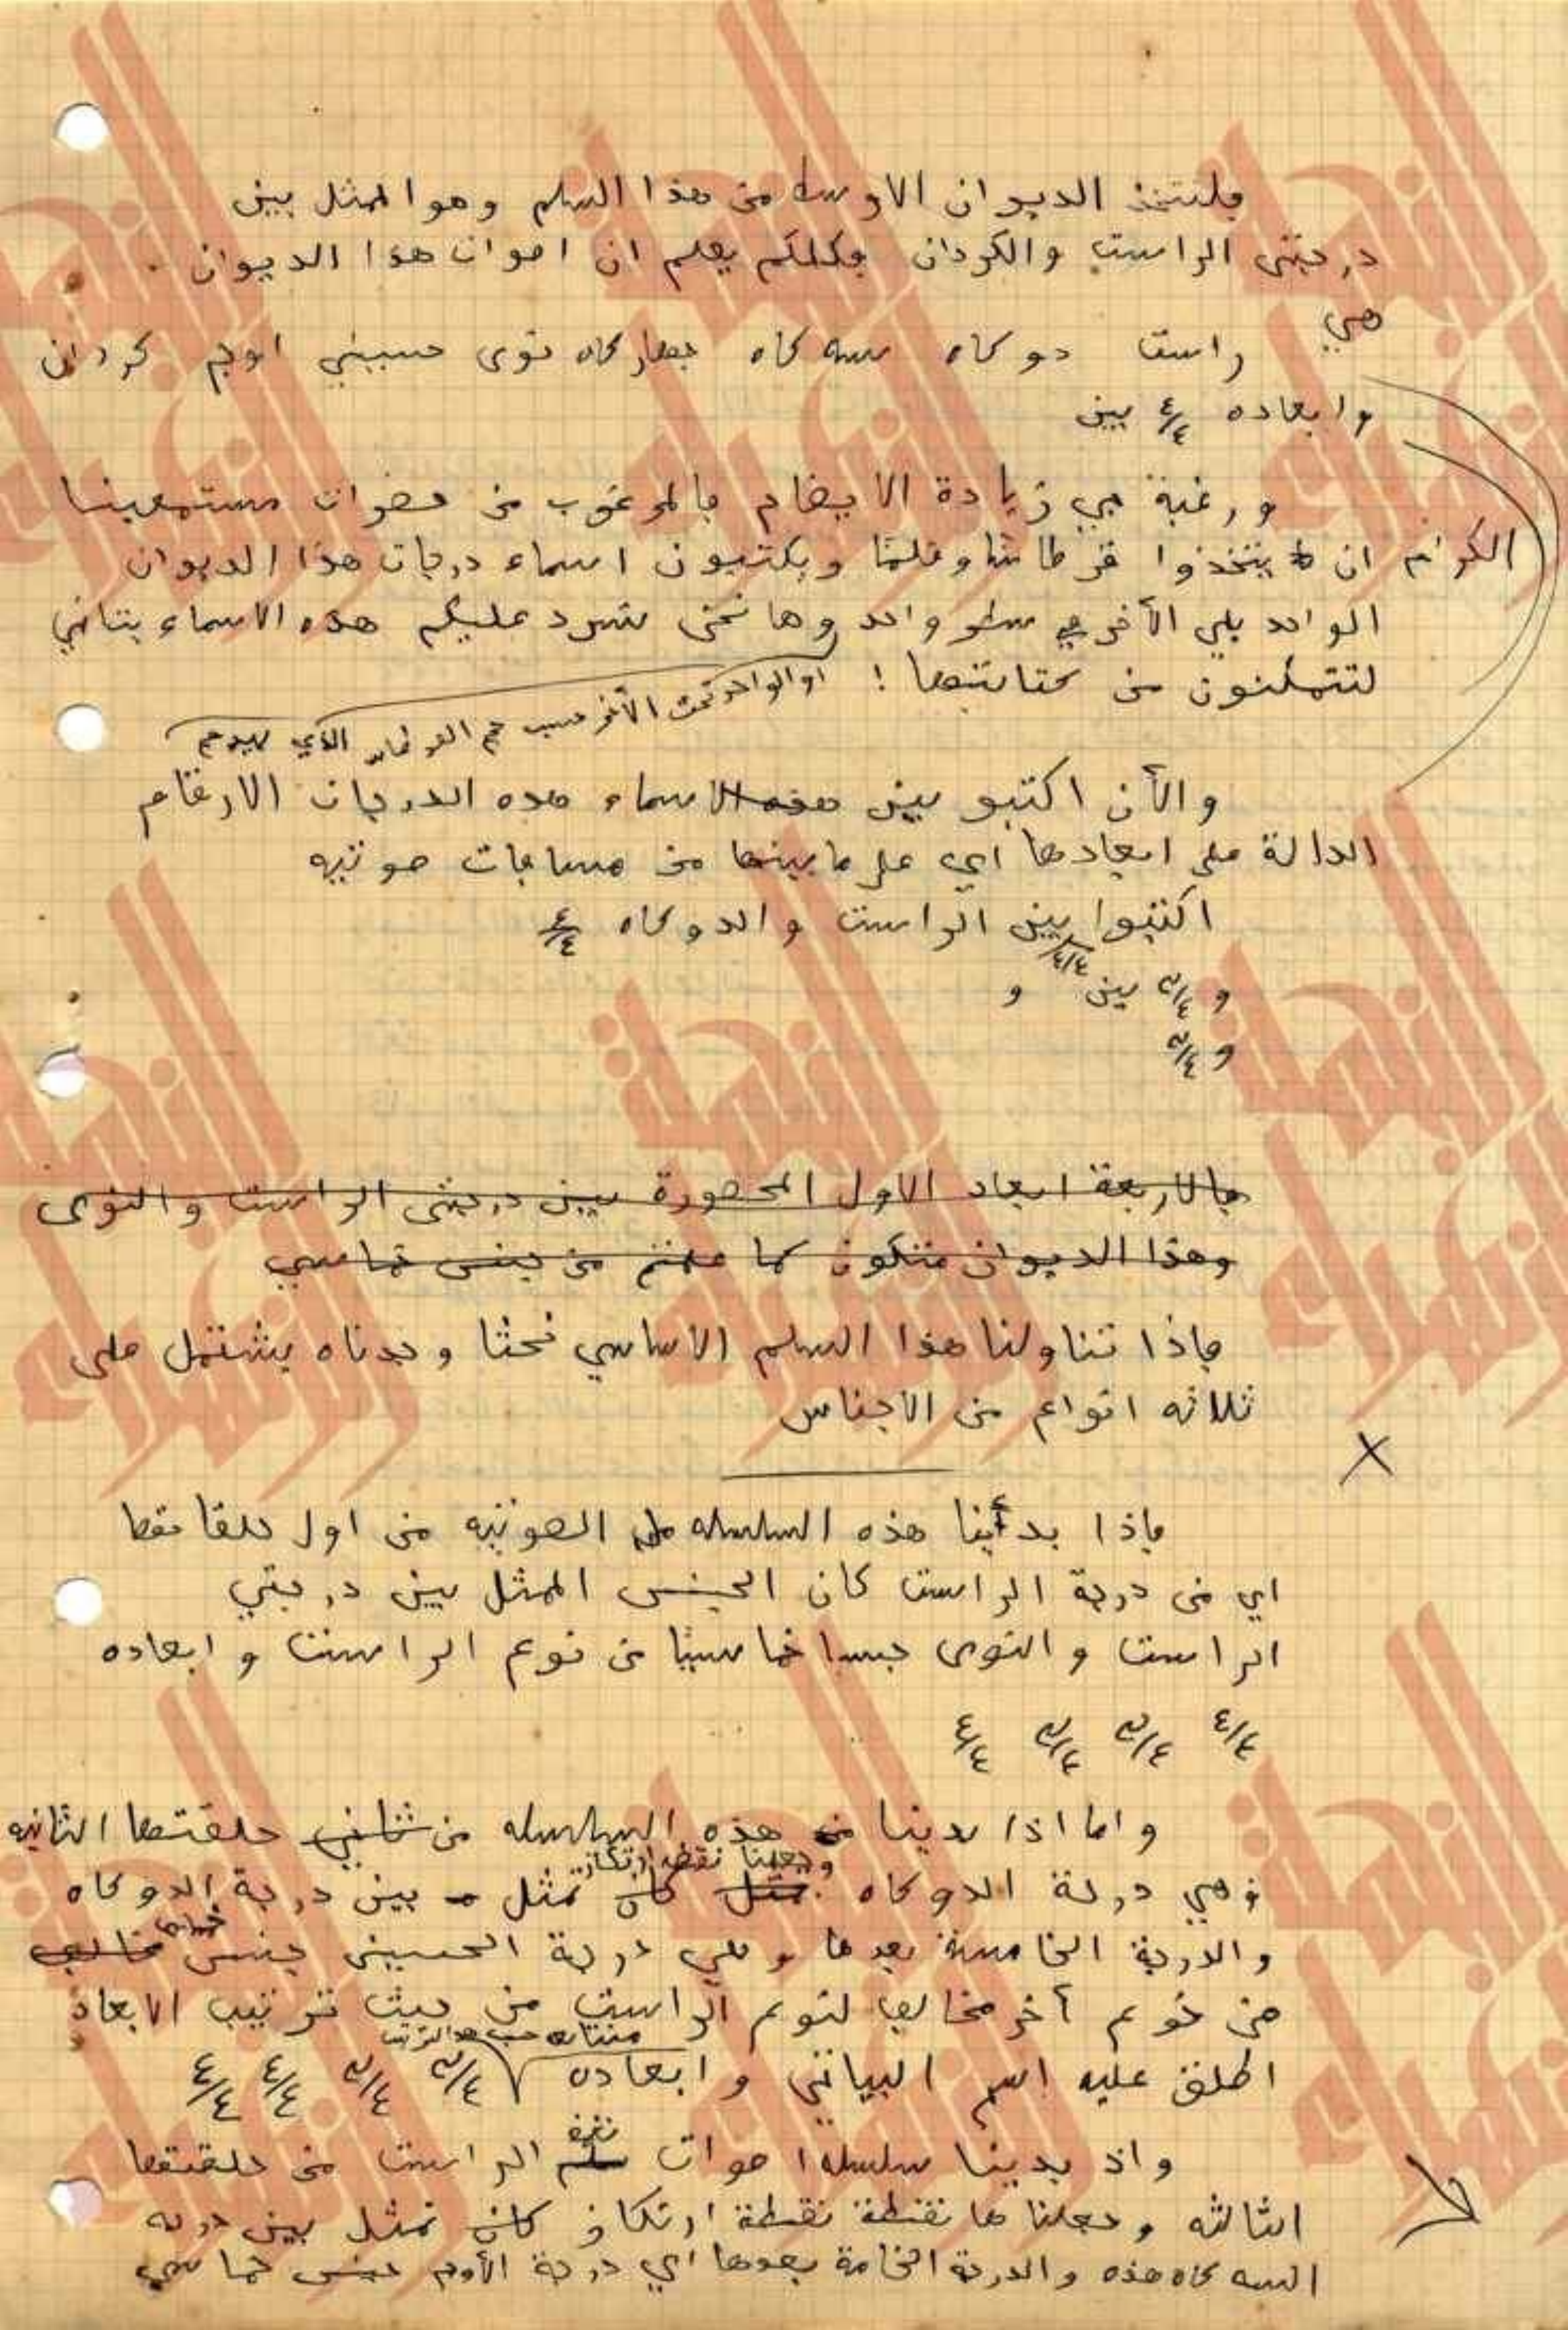 فلنتخذ الديوان الاوسط من هذا السلم وهو الممثل بين
درجتى الراست والكردان فكلكم يعلم ان اصوات هذا الديوان
هي
راست دوكاه سه كاه جهاركاه نوى حسيني اوج كردان
وابعاده ٤/٤ بين
ورغبة في زيادة الايضاح فالمرغوب من حضرات مستمعينا
الكرام ان يتخذوا قرطاسًا وقلمًا ويكتبون اسماء درجات هذا الديوان
الواحد يلي الآخر في سطر واحد وها نحن نسرد عليكم هذه الاسماء بتاني
لتتمكنون من كتابتها !
او الواحد تحت الآخر حسب حجم القرطاس الذي بيدكم
والأن اكتبو بين هذه الاسماء هذه الدرجات الارقام
الدالة على ابعادها اي على ما بينها من مسافات صوتيه
اكتبوا بين الراست والدوكاه ٤/٤
و ٣/٤ بين ٤/٤ و
و ٣/٤
فالاربعة ابعاد الاول المحصورة بين درجتى الراست والنوى
وهذا الديوان متكون كما علمتم من جنس خماسي
فاذا تناولنا هذا السلم الاساسي بحثا وجدناه يشتمل على
ثلاثه انواع من الاجناس
فإذا بدأنا هذه السلسله الصوتيه من اول حلقاتها
اي من درجة الراست كان الجنس الممثل بين درجتي
الراست والنوى جنسا خماسيًا من نوع الراست وابعاده
٤/٤ ٣/٤ ٣/٤ ٤/٤
واما اذا بدينا من هذه السلسله من ثاني حلقتها الثانيه
وجعلنا نقطة ارتكاز
وهي درجة الدوكاه تمثل كان تمثل بين درجة الدوكاه
خماسي
والدرجة الخامسة بعدها وهي درجة الحسينى جنس مخالف
من نوع آخر مخالف لنوع الراست من حيث ترتيب الابعاد
متتابعه حسب هذا الترتيب
اطلق عليه اسم البياتي وابعاده ٣/٤ ٣/٤ ٤/٤ ٤/٤
نغمة
واذ بدينا سلسلة اصوات سلم الراست من حلقتها
الثالثه وجعلناها نقطة نقطة ارتكاز كان تمثل بين درجه
السه كاه هذه والدرجة الخامة بعدها اي درجة الأوج جنس خماسي